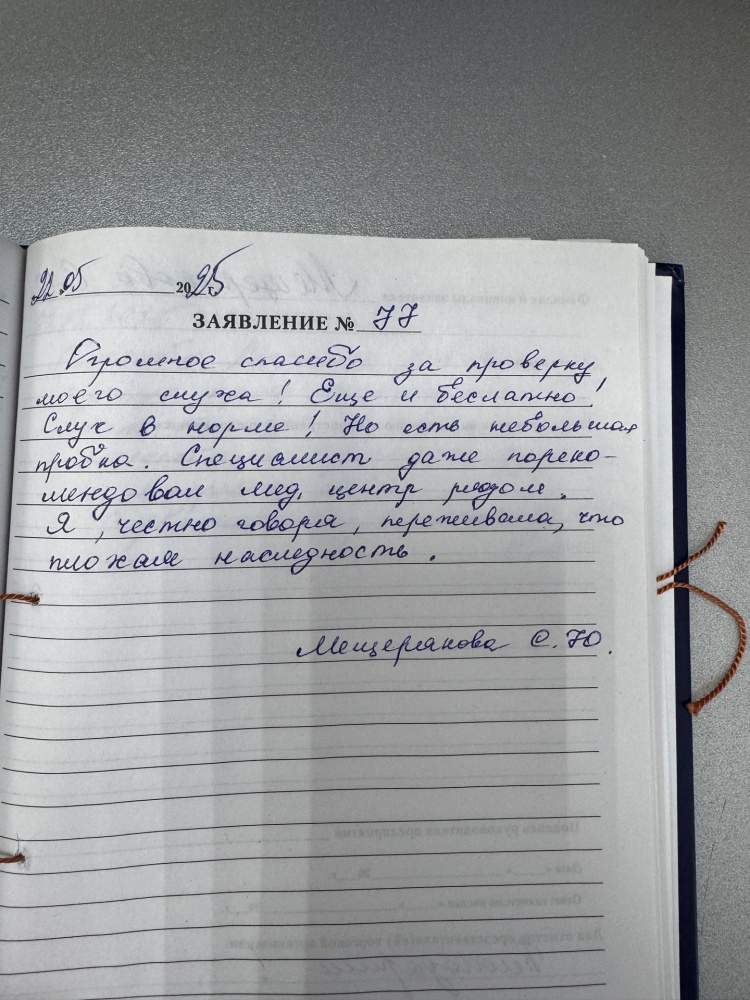 22.05 2025
ЗАЯВЛЕНИЕ № 77
Огромное спасибо за проверку
моего слуха! Еще и бесплатно!
Слух в норме! Но есть небольшая
пробка. Специалист даже пореко-
мендовал мед. центр рядом.
Я, честно говоря, переживала, что
плохая наследность.
Мещерякова С.Ю.